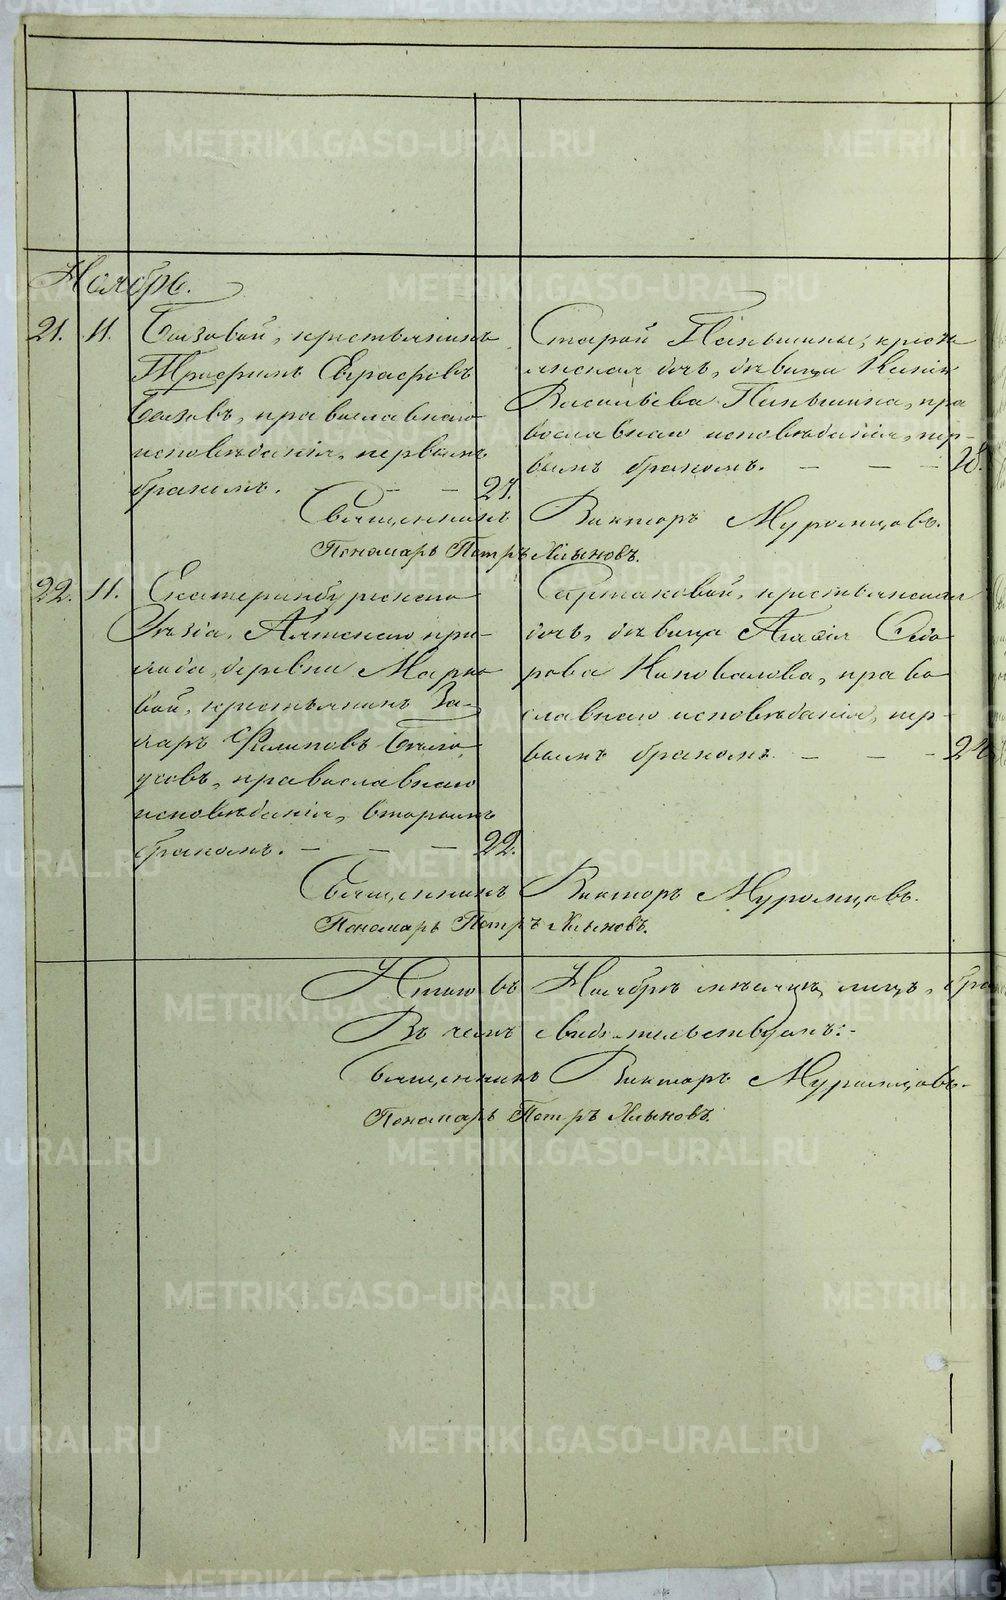 Ноябрь.
21. 11. Базовой, крестьянинъ
Трифилъ Евграфовъ
Базовъ, православнаго
исповѣданія, первымъ
бракомъ. — — — 27.
Старой Паньшины, кресть
янская дочь, дѣвица
Васильева Паньшина, пра
вославнаго исповѣданія, пер-
вымъ бракомъ. — — — 28.
Священникъ Викторъ Муромцовъ.
Пономарь Петръ Хлыновъ.
22. 11. Екатеринбургскаго
Уѣзда, Аятскаго при-
хода, деревни Марко
вой, крестьянинъ За-
харъ Филиповъ Бѣло
усовъ, православнаго
исповѣданія, вторымъ
бракомъ. — — — 22.
Сартаковой, крестьянская
дочь, дѣвица Агафія Сидо
рова Коновалова, право
славнаго исповѣданія, пер-
вымъ бракомъ. — — —
Священникъ Викторъ Муромцовъ.
Пономарь Петръ Хлыновъ.
Итого въ Ноябрѣ мѣсяцѣ лицъ, бра
Въ чемъ свидѣтельствуемъ:-
Священникъ Викторъ Муромцовъ.
Пономарь Петръ Хлыновъ.
METRIKI.GASO-URAL.RU